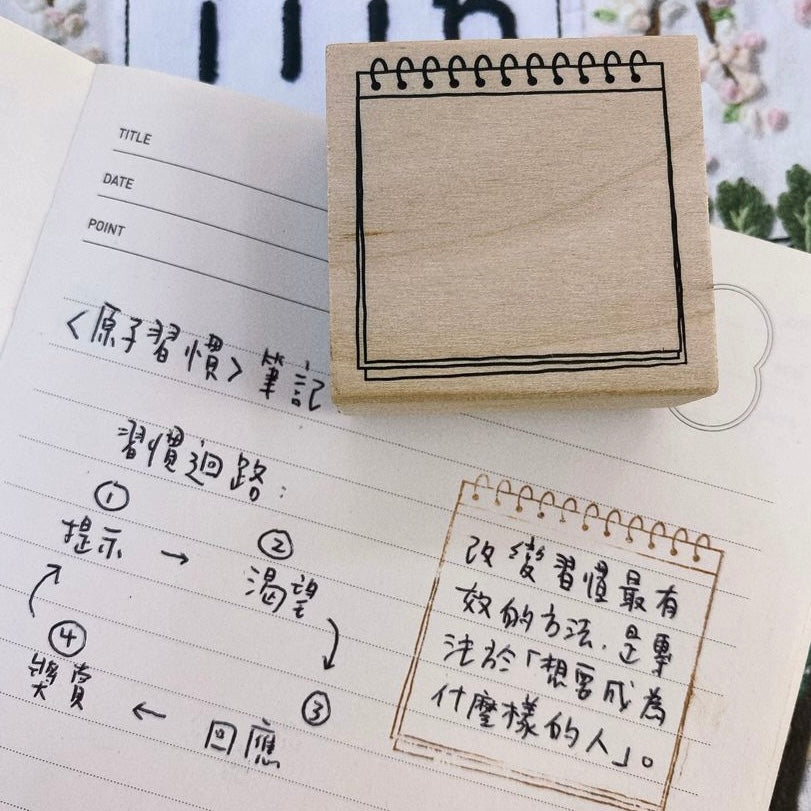 TITLE
DATE
POINT
〈原子習慣〉筆記
習慣迴路：
①
提示 →
②
渴望
④
獎賞
③
← 回應
改變習慣最有
效的方法，是專
注於「想要成為
什麼樣的人」。